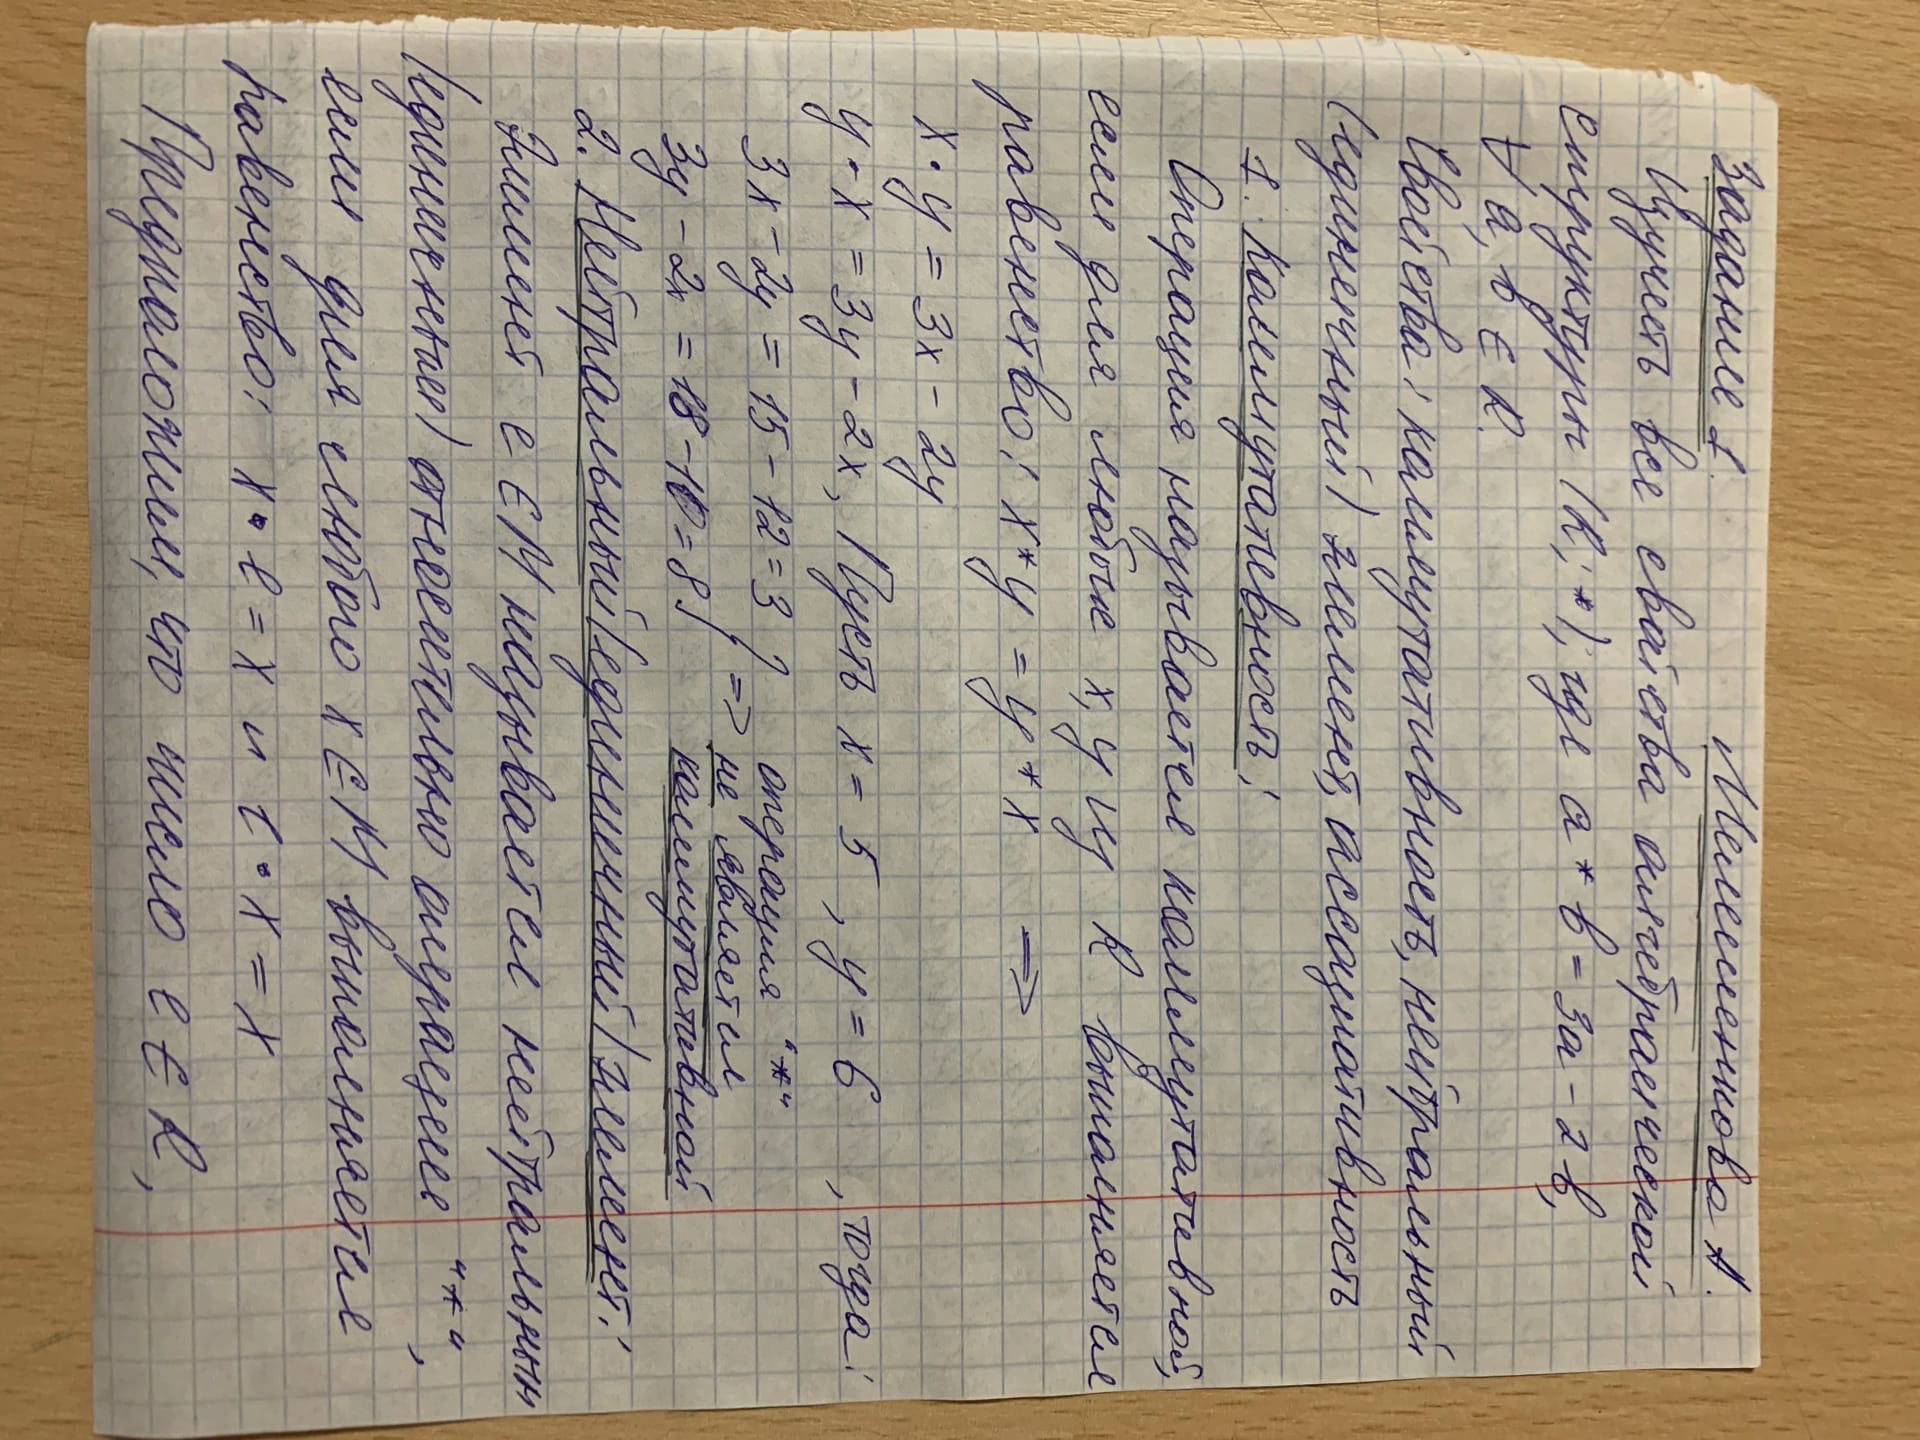 Задание 1. Мелесенкова А.
Изучить все свойства алгебраической
структуры (R; *), где a * b = 3a - 2b,
∀ a, b ∈ R.
Свойства: коммутативность, нейтральный
(единичный) элемент, ассоциативность
1. Коммутативность:
Операция называется коммутативной,
если для любых x, y из R выполняется
равенство: x * y = y * x ⇒
x • y = 3x - 2y
y • x = 3y - 2x, Пусть x = 5, y = 6, тогда:
3x - 2y = 15 - 12 = 3
3y - 2x = 18 - 10 = 8 } ⇒ операция "*" не является коммутативной
2. Нейтральный (единичный) элемент:
Элемент e ∈ M называется нейтральным
(единичным) относительно операции "*",
если для любого x ∈ M выполняется
равенство: x • e = x и e • x = x
Предположим, что число e ∈ R,